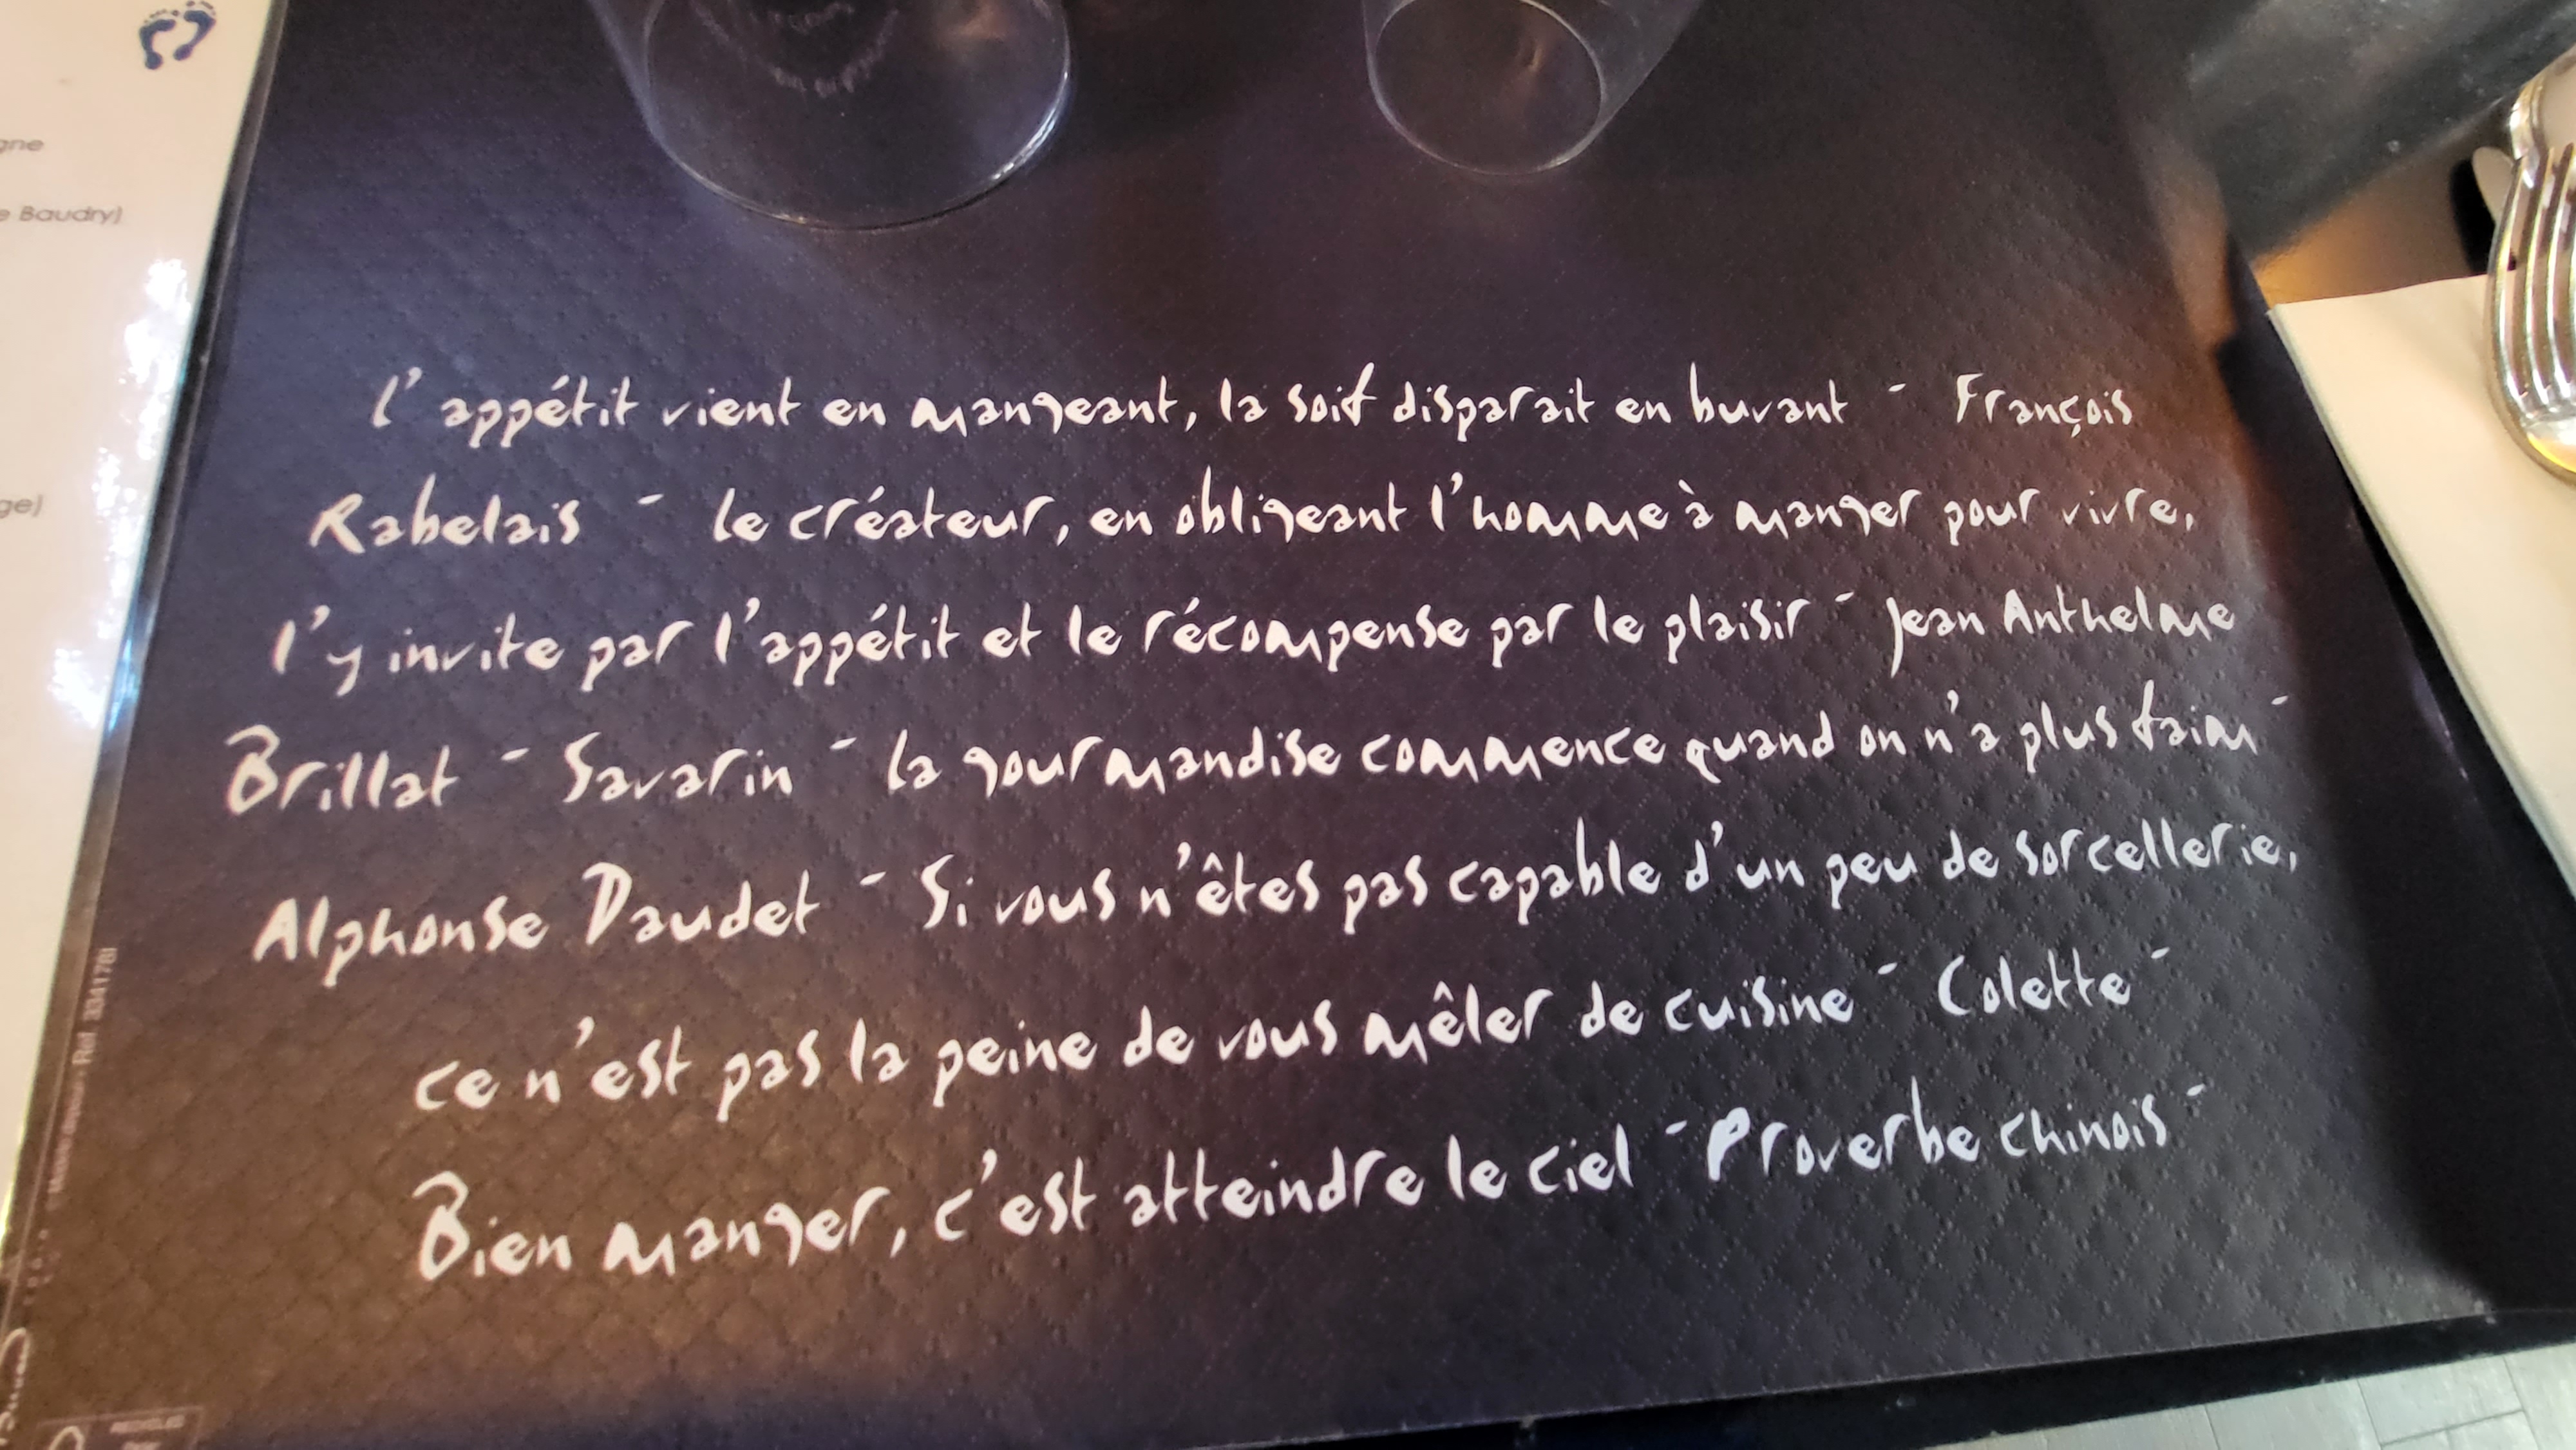 gne
e Baudry)
ge)
l'appétit vient en mangeant, la soif disparait en buvant - François
Rabelais - le créateur, en obligeant l'homme à manger pour vivre,
l'y invite par l'appétit et le récompense par le plaisir - Jean Anthelme
Brillat - Savarin - la gourmandise commence quand on n'a plus faim -
Alphonse Daudet - Si vous n'êtes pas capable d'un peu de sorcellerie,
ce n'est pas la peine de vous mêler de cuisine - Colette -
Bien manger, c'est atteindre le ciel - Proverbe chinois -